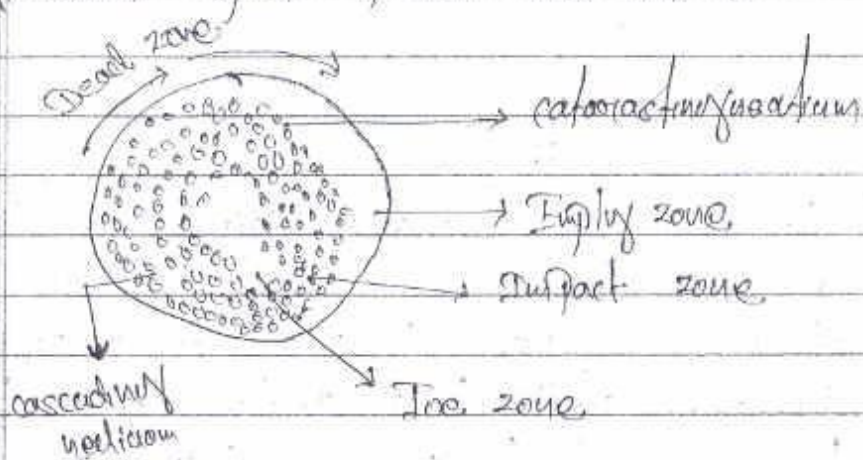 Dead zone
cataracting motion
Empty zone
Impact zone
Toe zone
cascading
motion